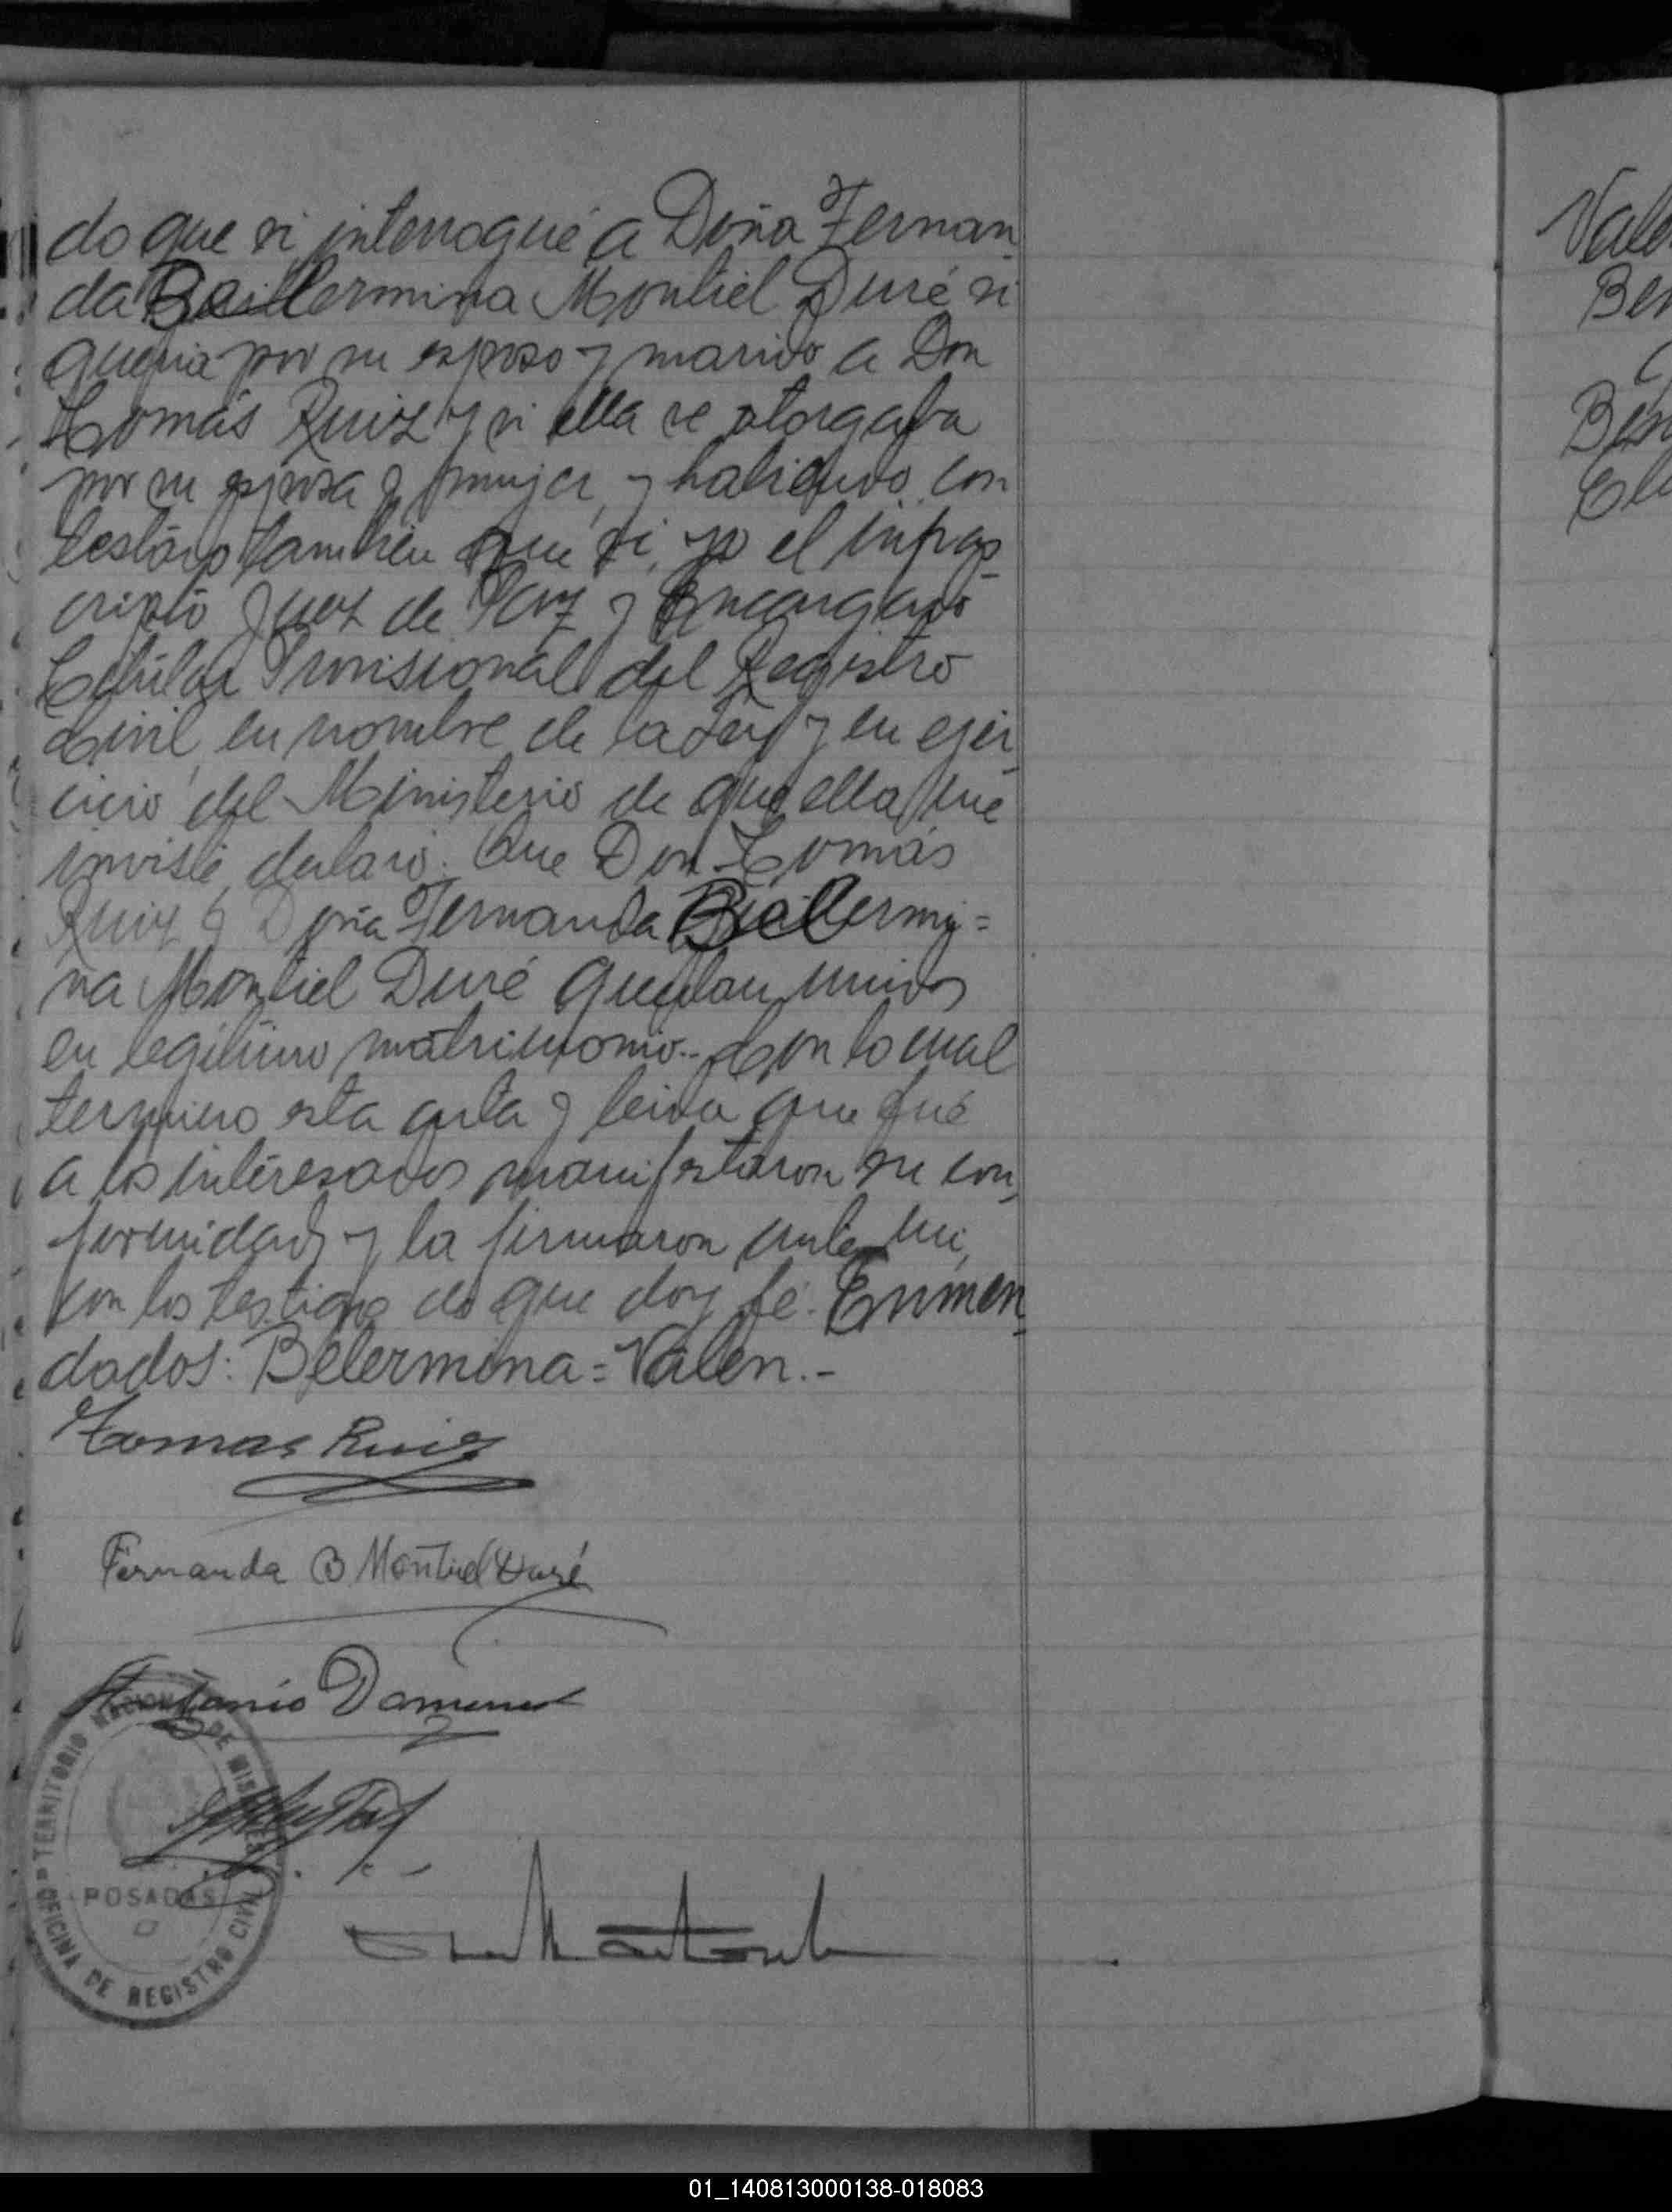 do que si interrogué a Doña Fernan
da Belermina Montiel Duré si
queria por su esposo y marido a Don
Tomás Ruiz y si ella se otorgaba
por su esposa y mujer, y habiendo con
testado tambien que si, yo el infras-
cripto Juez de Paz y Encargado
Titular Provisional del Registro
Civil, en nombre de la Ley y en ejer
cicio del Ministerio de que ella me
inviste, declaro: Que Don Tomás
Ruiz y Doña Fernanda Belermi=
na Montiel Duré quedan unidos
en legitimo matrimonio.- Con lo cual
termino esta acta y leida que fué
a los interesados manifestaron su con,
formidad y la firmaron ante mi,
con los testigos de que doy fé. Enmen
dados: Belermina = Valen.-
Tomas Ruiz
Fernanda B Montiel Duré
Antonio
TERRITORIO NACIONAL DE MISIONES
POSADAS
OFICINA DE REGISTRO CIVIL
Ben
01_140813000138-018083